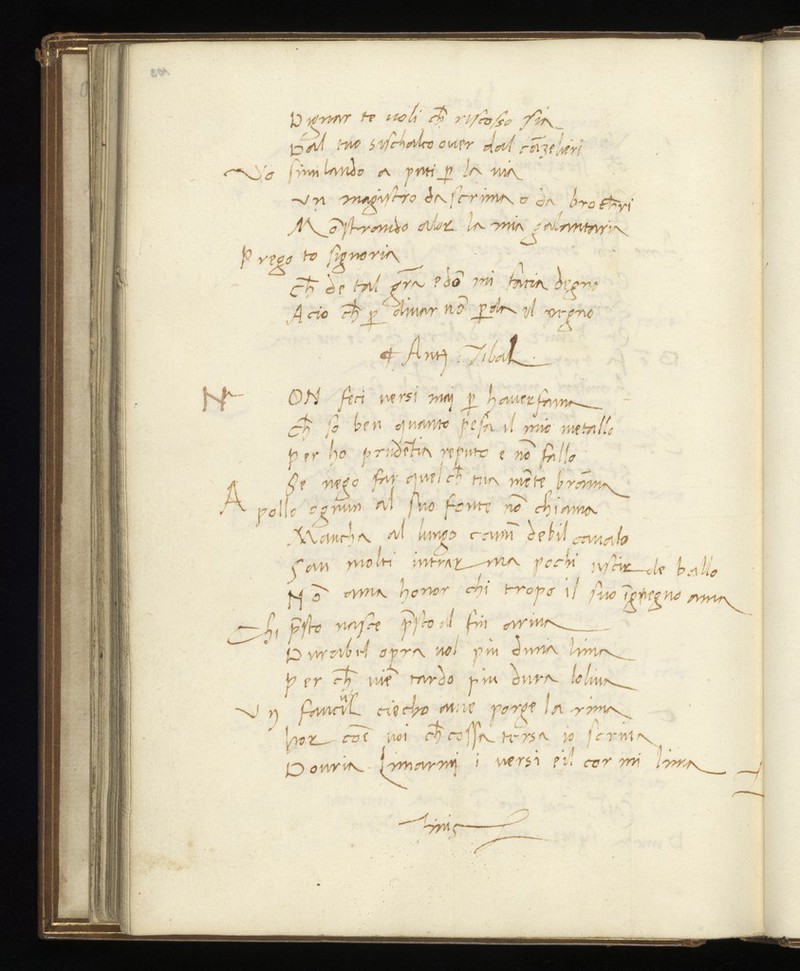 Dignar te uoli ch̄ riscosso sia
Dal tuo sischalco ouer dal cāzelieri
Vo similando a pati ꝑ la uia
Vn magistro da scrima o da brochieri
Mōstrando alor la mia galantaria
Prego to signoria
ch̄ de tal gr̄a e dō mi facia degno
Acio ch̄ ꝑ diuar nō ꝑda il regno
Antᵒ Tibal
N
ON feci uersi maj ꝑ hauer fama
ch̄ so ben quanto pesa il mio metallo
per ho prudētia reputo e nō fallo
Se nego far quel ch̄ tua mēte brāma
Apollo ognun al suo fonte nō chiama
Mancha al lungo camī debil cauallo
San molti intrar ma pochi uscir de ballo
Nō ama honor chi tropo il suo īgegno ama
Chi p̄sto nasce p̄sto al fin ariua
Durabil opra uol piu dura lima
per ch̄ uiē tardo piu dura loliua
Vn fanciul ciecho a me porge la rima
hor cōe uoi ch̄ cossa tersa io scriua
Douria limarmj i uersi e il cor mi lima
finis